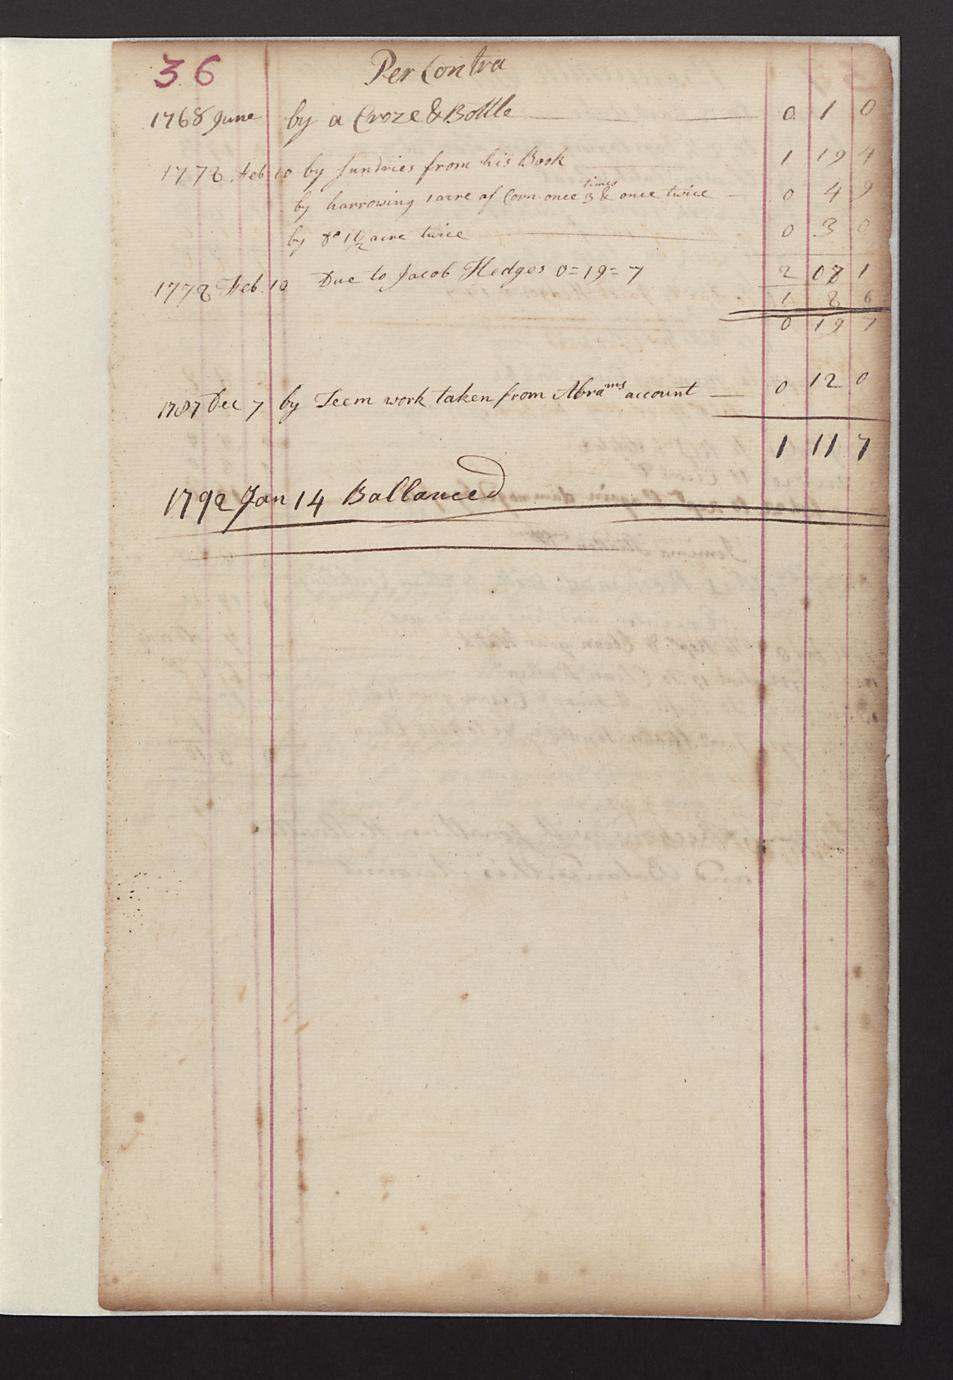 36 Per Contra
1768 June by a Croze & Bottle 0 1 0
1772 Feb 10 by Sundries from his Book 1 19 4
by harrowing 1 acre of Corn once 3 times & once twice 0 4 9
by do 1 1/2 acre twice 0 3 0
1772 Feb. 10 Due to Jacob Hedges 0=19=7 2 08 1
1 8 6
0 19 7
1787 Dec 7 by Teem work taken from Abrams account 0 12 0
1 11 7
1792 Jan 14 Ballanced